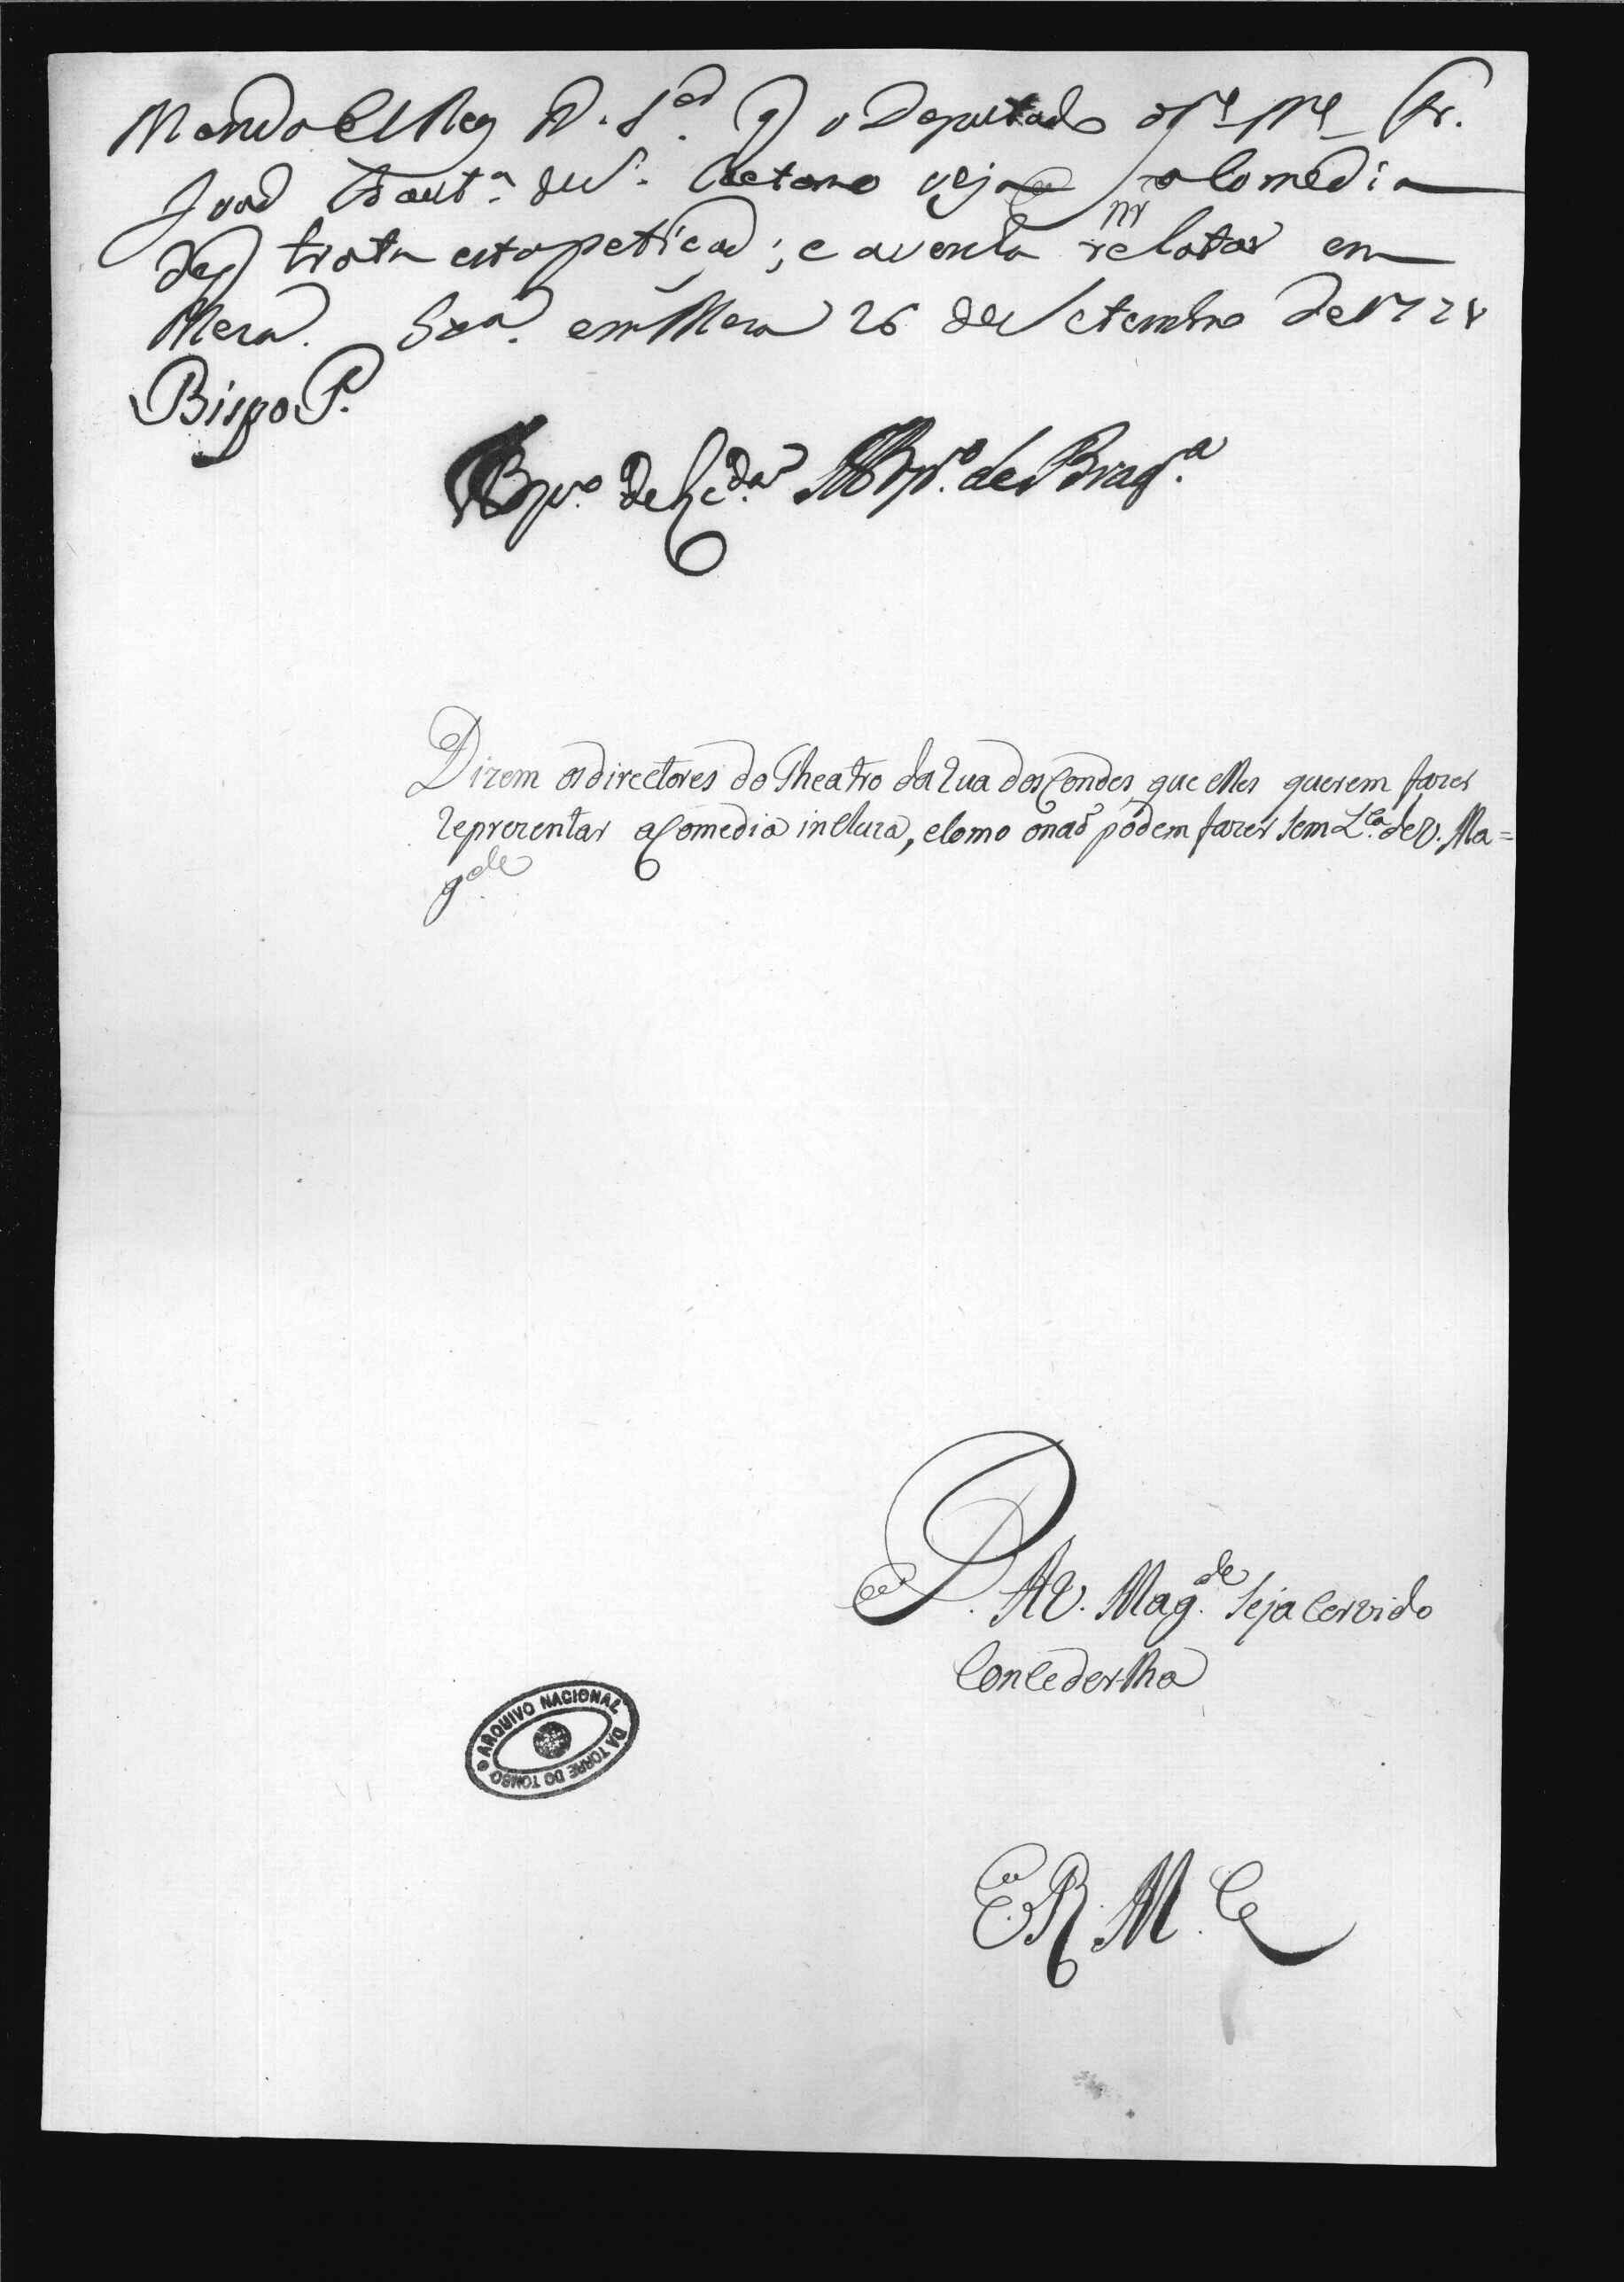 Manda El Rey N. S.or q o Deputado o P.e M.e Fr.
Joaõ Baut.a de S. Caetano veja a Comedia
de q trata esta petiçaõ; e a venha relatar em
Meza. Lxa. em Meza 26 de Setembro de 17
Bispo P.
de Brag.a
Dizem os directores do Theatro da Rua dos Condes, que elles querem fazer
reprezentar a Comedia incluza, e como o naõ pódem fazer sem L.ca de V. Ma=
g.de
P. A V. Mag.de Seja Cervido
Conceder-lha
E. R. M.ce
ARQUIVO NACIONAL DA TORRE DO TOMBO